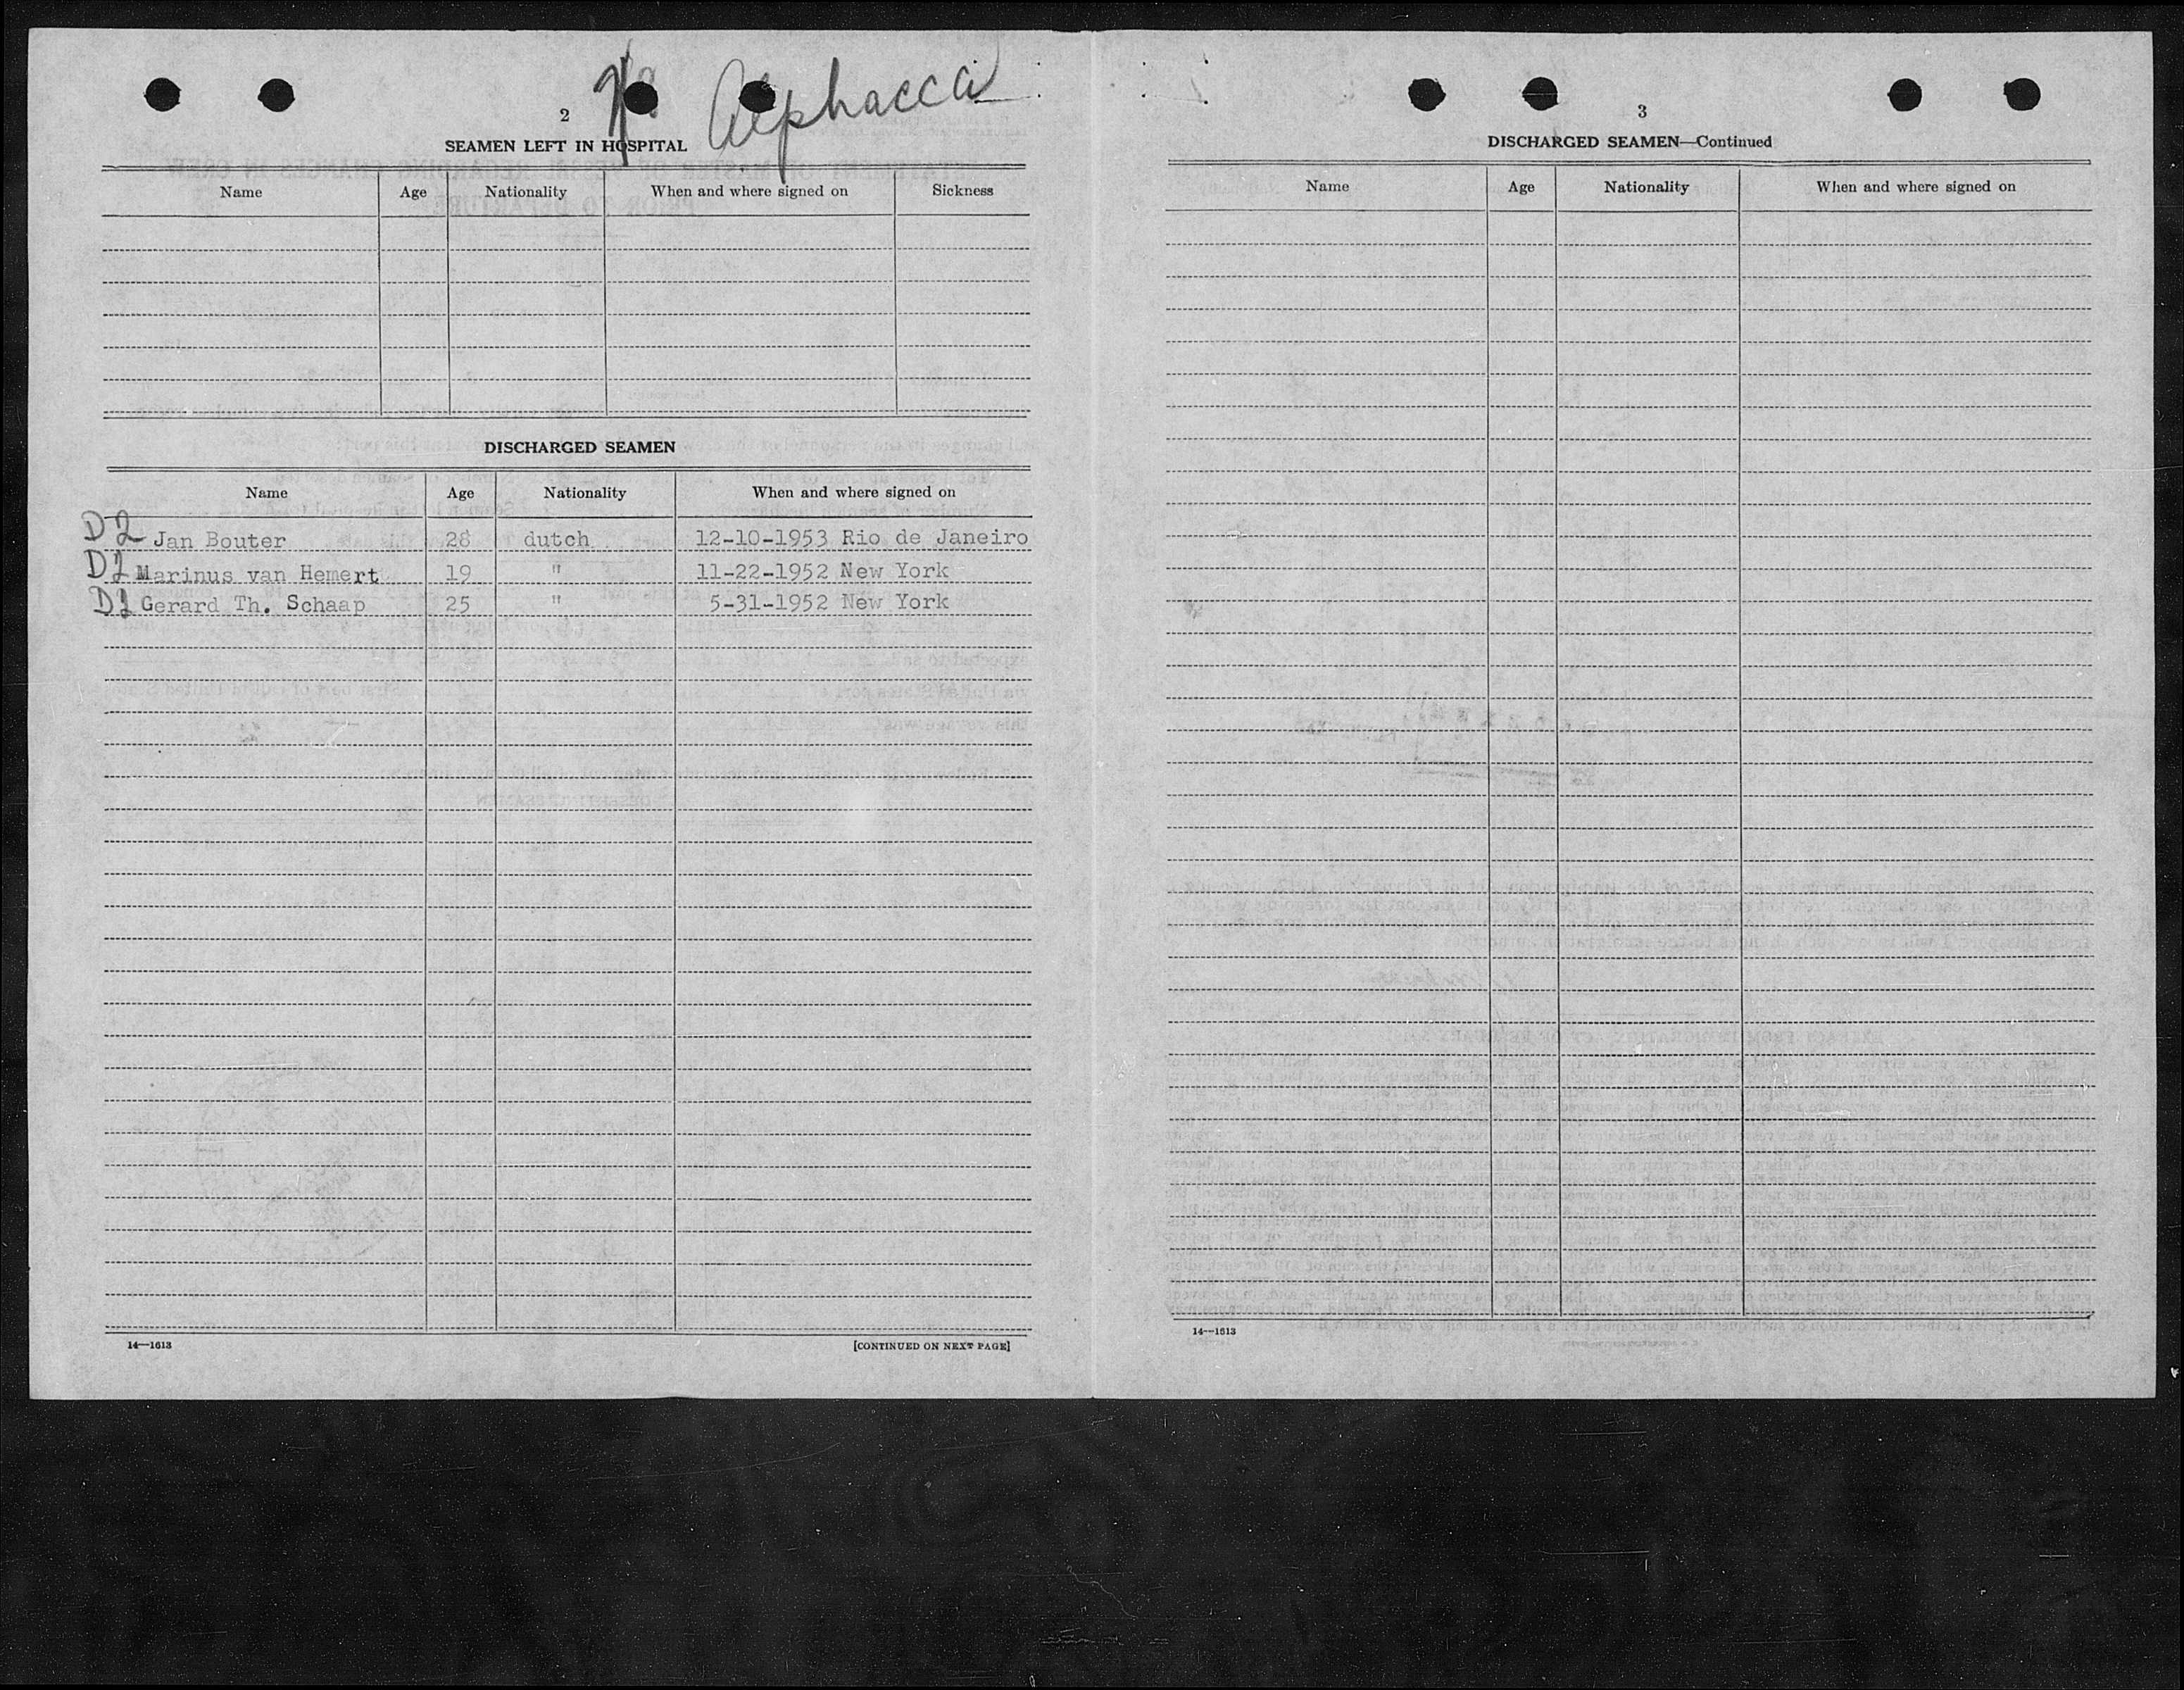 2
Alphacca
SEAMEN LEFT IN HOSPITAL
Name Age Nationality When and where signed on Sickness
DISCHARGED SEAMEN
Name Age Nationality When and where signed on
D2 Jan Bouter 28 dutch 12-10-1953 Rio de Janeiro
D1 Marinus van Hemert 19 " 11-22-1952 New York
D1 Gerard Th. Schaap 25 " 5-31-1952 New York
14—1613 [CONTINUED ON NEXT PAGE]
3
DISCHARGED SEAMEN—Continued
Name Age Nationality When and where signed on
14—1613